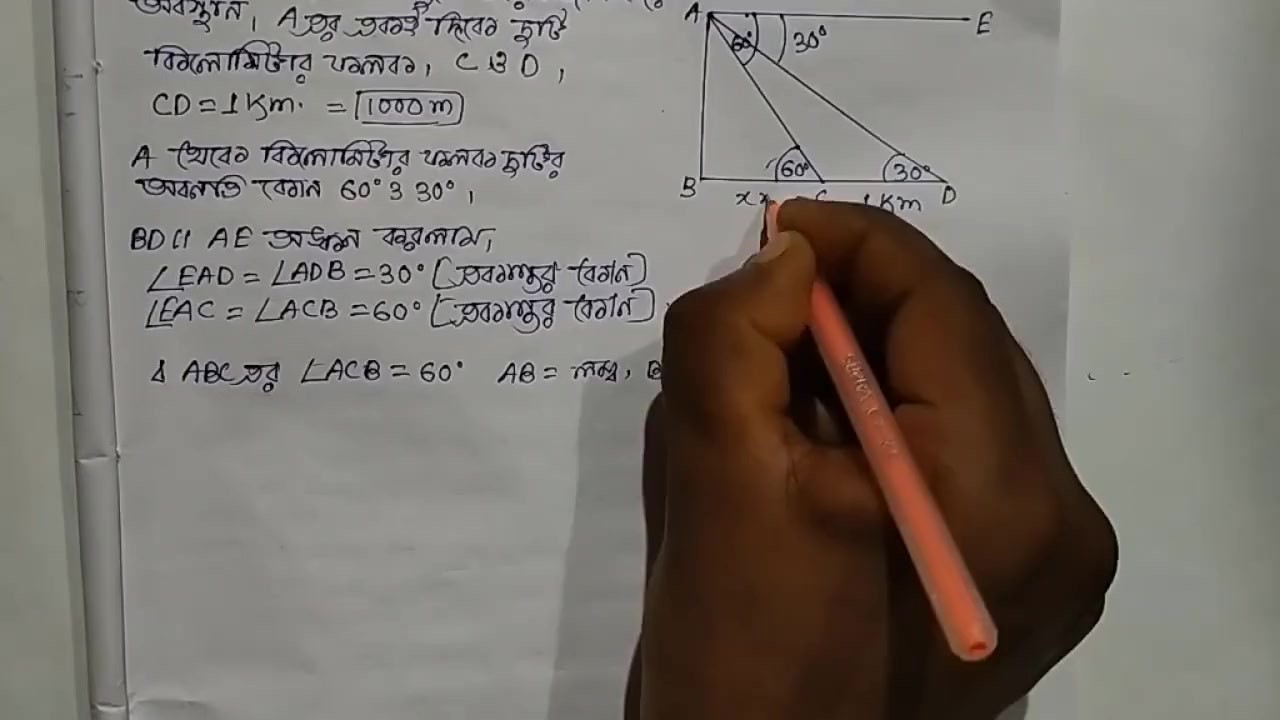 অবস্থান, A এর একই দিকের দুটি
কিলোমিটার ফলক, C ও D,
CD = 1 Km. = 1000 m
A থেকে কিলোমিটার ফলক দুটির
অবনতি কোণ 60° ও 30°,
BD || AE অঙ্কন করলাম,
∠EAD = ∠ADB = 30° [একান্তর কোণ]
∠EAC = ∠ACB = 60° [একান্তর কোণ]
Δ ABC এর ∠ACB = 60° AB = লম্ব, B
A E
60° 30°
60° 30°
B D
x 1 Km